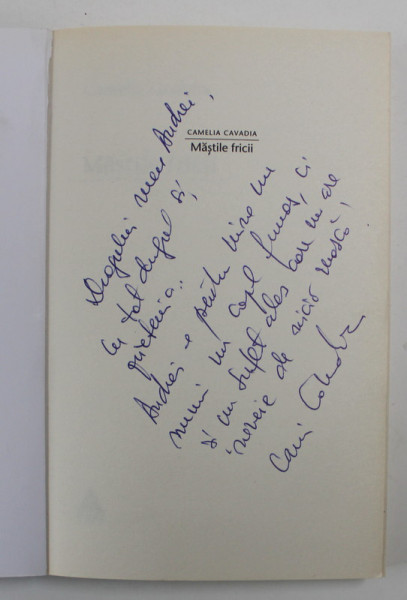 CAMELIA CAVADIA
Măștile fricii
Dragului meu Andrei,
Cu tot dragul și
prietenia..
Andrei e pentru mine nu
numai un copil frumos, ci
și un suflet ales care nu are
nevoie de nicio mască,
Cami